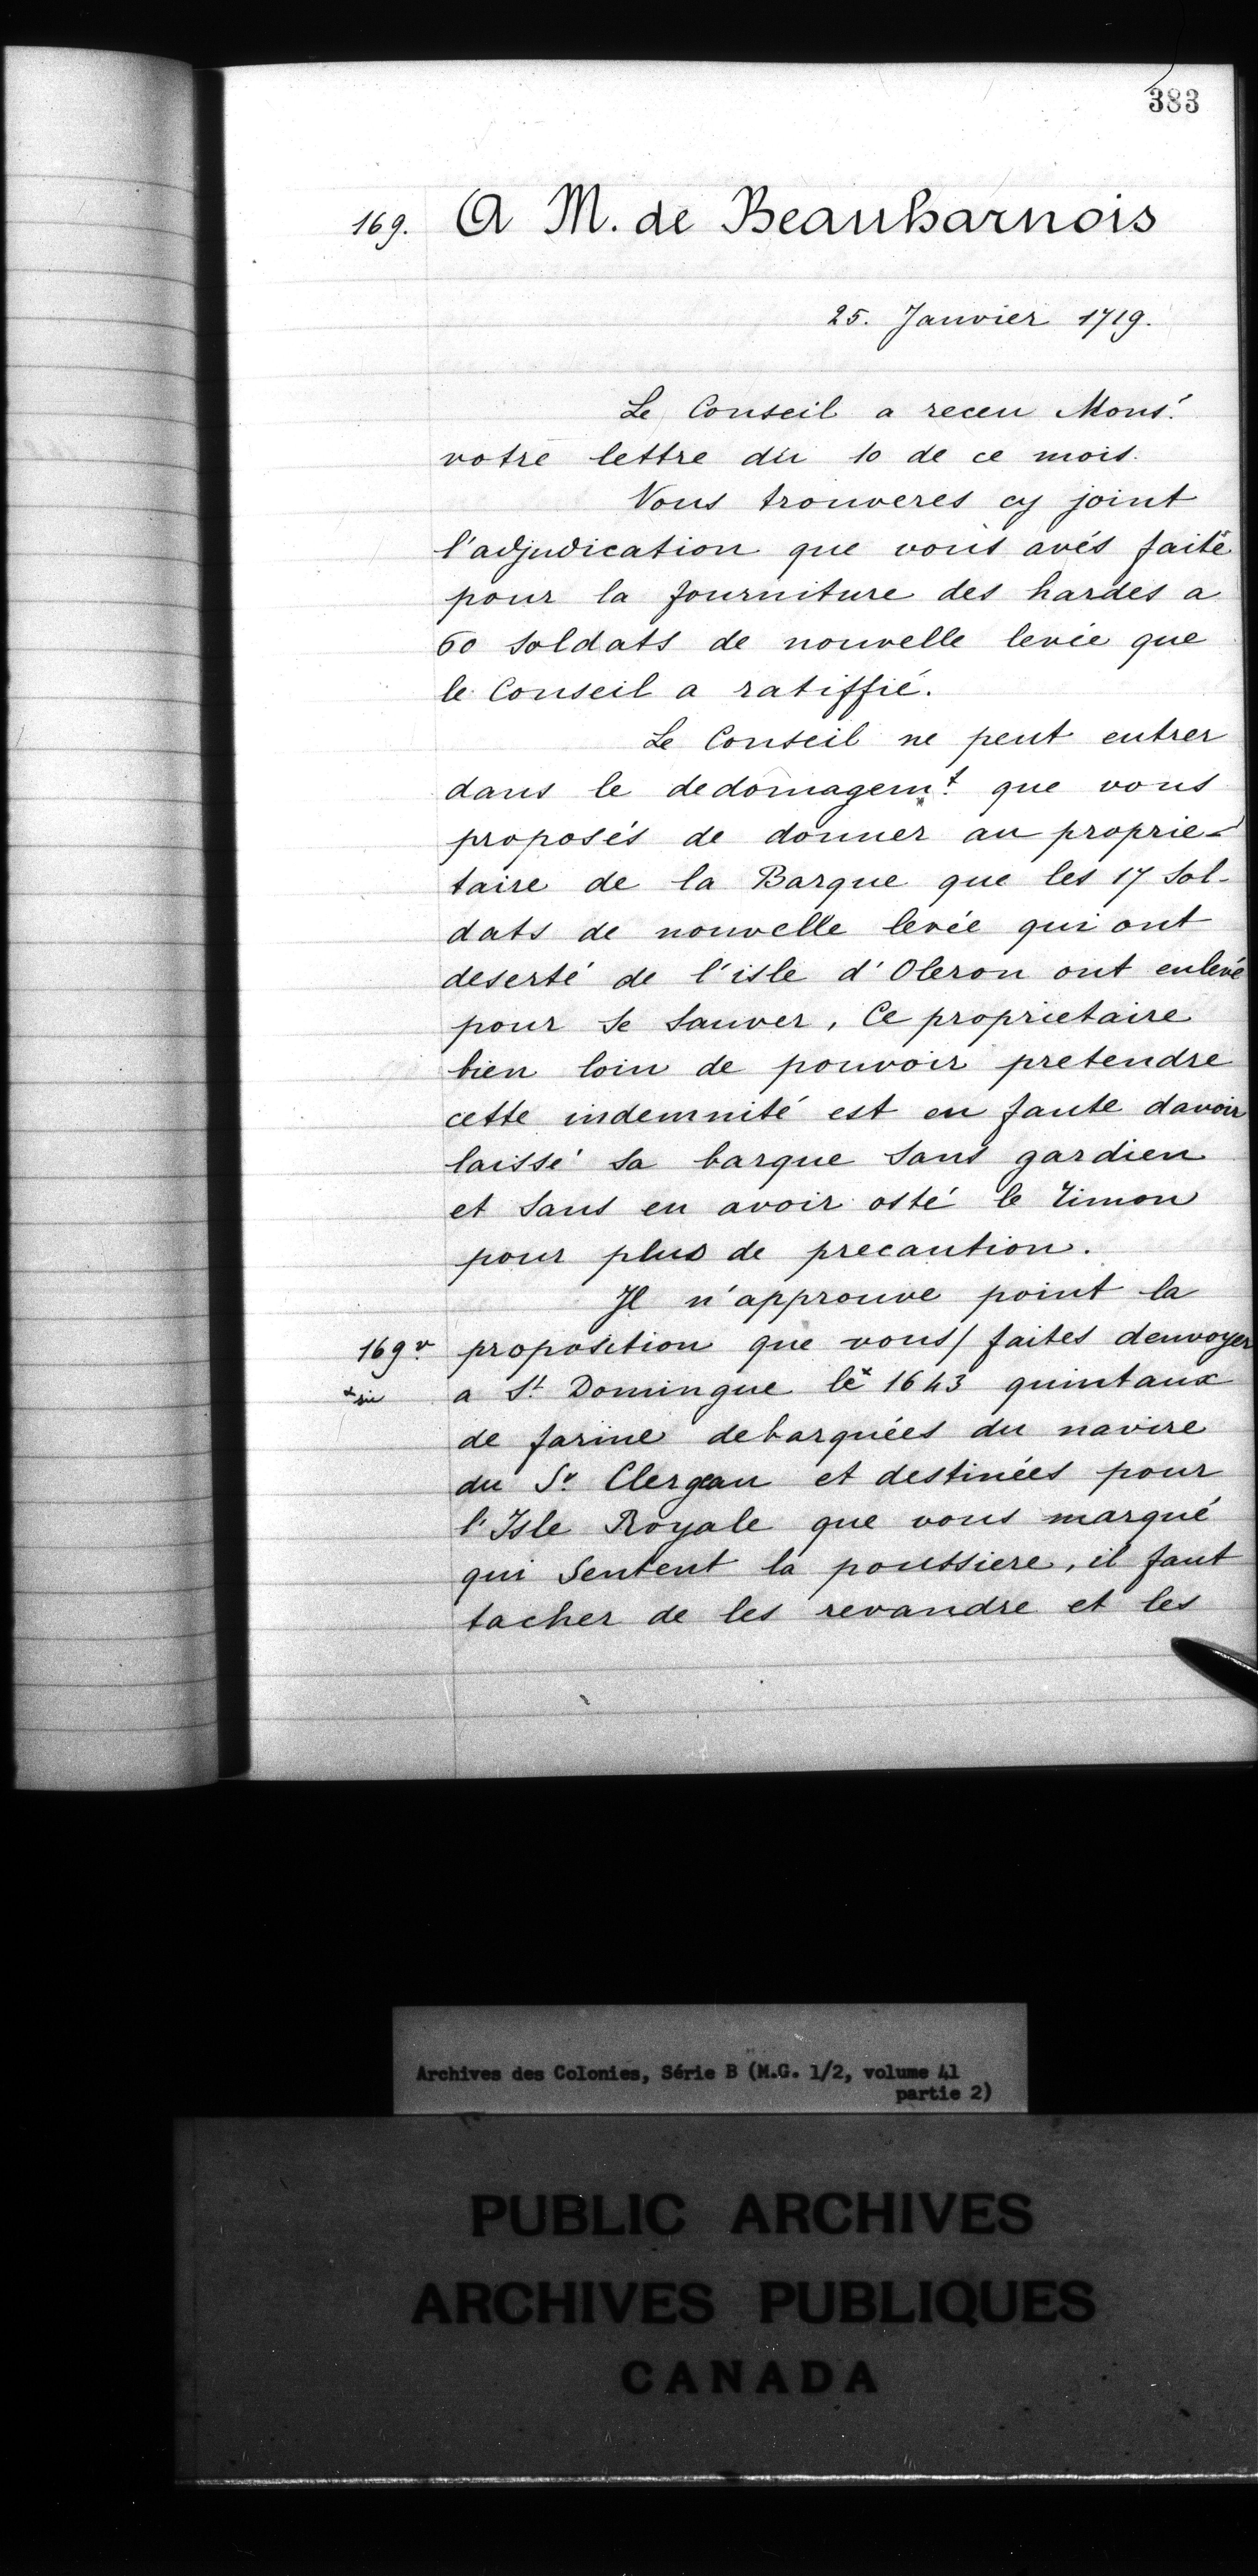 383
169. A M. de Beauharnois
25. Janvier 1719.
Le Conseil a receu Monsr.
votre lettre du 10 de ce mois.
Vous trouveres cy joint
l'adjudication que vous avés faite
pour la fourniture des hardes a
60 soldats de nouvelle levée que
le Conseil a ratiffié.
Le Conseil ne peut entrer
dans le dedomagemt. que vous
proposés de donner au proprie-
taire de la Barque que les 17 sol-
dats de nouvelle levée qui ont
deserté de l'isle d'Oleron ont enlevé
pour se sauver, Ce proprietaire
bien loin de pouvoir pretendre
cette indemnité est en faute davoir
laissé sa barque sans gardien
et sans en avoir osté le timon
pour plus de precaution.
Il n'approuve point la
169v. proposition que vous/ faites denvoyer
x sic a St. Domingue le x 1643 quintaux
de farine debarquées du navire
du Sr. Clergeau et destinées pour
l'Isle Royale que vous marqué
qui sentent la poussiere, il faut
tacher de les revandre et les
Archives des Colonies, Série B (M.G. 1/2, volume 41
partie 2)
PUBLIC ARCHIVES
ARCHIVES PUBLIQUES
CANADA